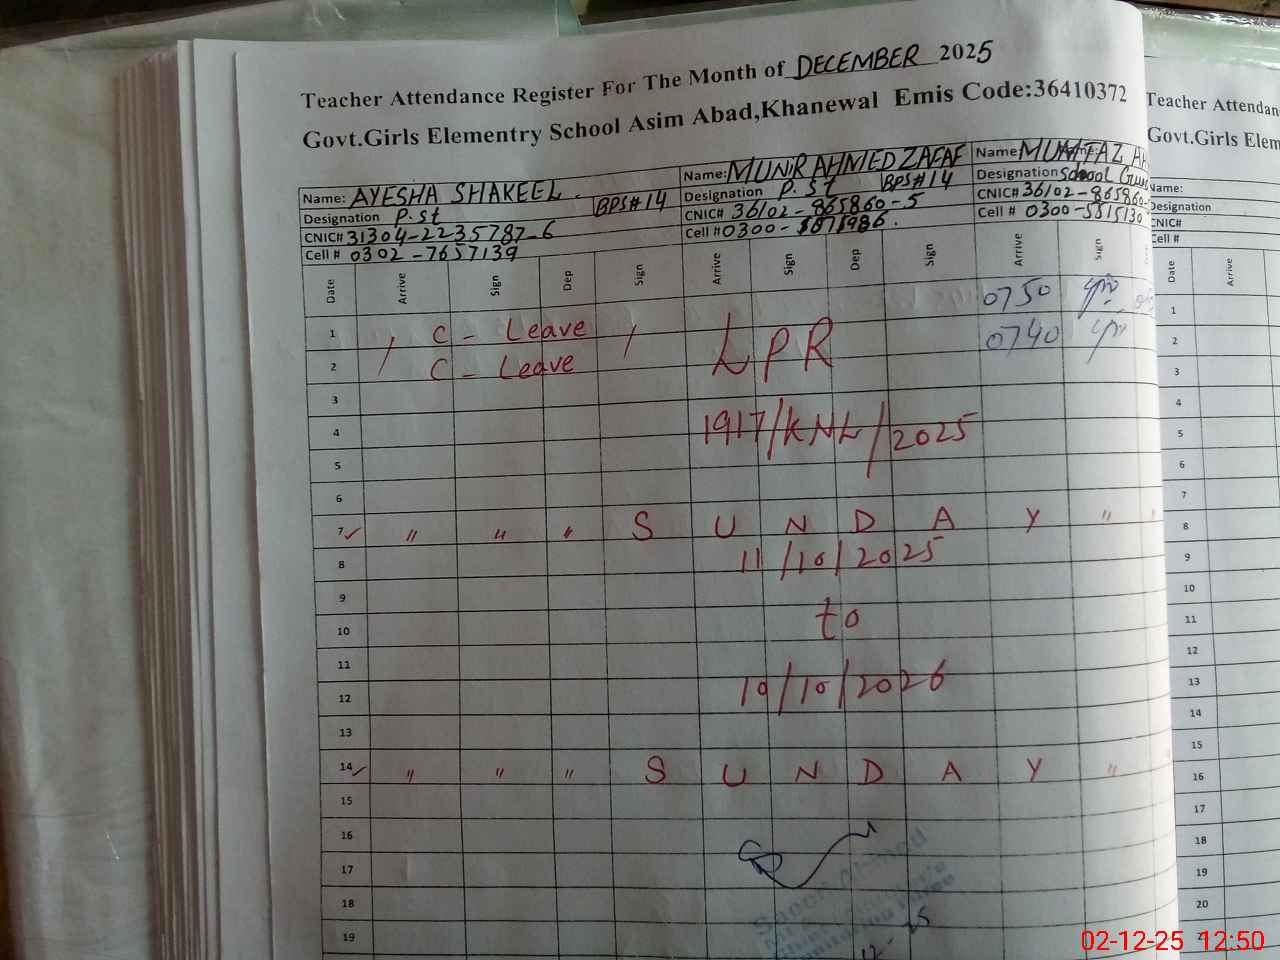 Teacher Attendance Register For The Month of DECEMBER 2025
Govt.Girls Elementry School Asim Abad,Khanewal Emis Code:36410372
Name: AYESHA SHAKEEL. BPS#14
Designation P.st
CNIC# 31304-2235787-6
Cell # 0302-7657139
Name: MUNIR AHMED ZAFAF BPS#14
Designation P.st
CNIC# 36102-865860-5
Cell # 0300-
Name: MUMTAZ
Designation School
CNIC# 36102-865860-
Cell # 0300-
Date Arrive Sign Dep Sign Arrive Sign Dep Sign Arrive Sign
1 C - Leave 0750
2 C - Leave LPR 0740
3
4 1917/KNL/2025
5
6
7 ✓ " " " S U N D A Y " "
8 11/10/2025
9
10 to
11
12 10/10/2026
13
14 ✓ " " " S U N D A Y " "
15
16
17
18
19
Teacher Attendan
Govt.Girls Elem
Name:
Designation
CNIC#
Cell #
Date Arrive
1
2
3
4
5
6
7
8
9
10
11
12
13
14
15
16
17
18
19
20
02-12-25 12:50